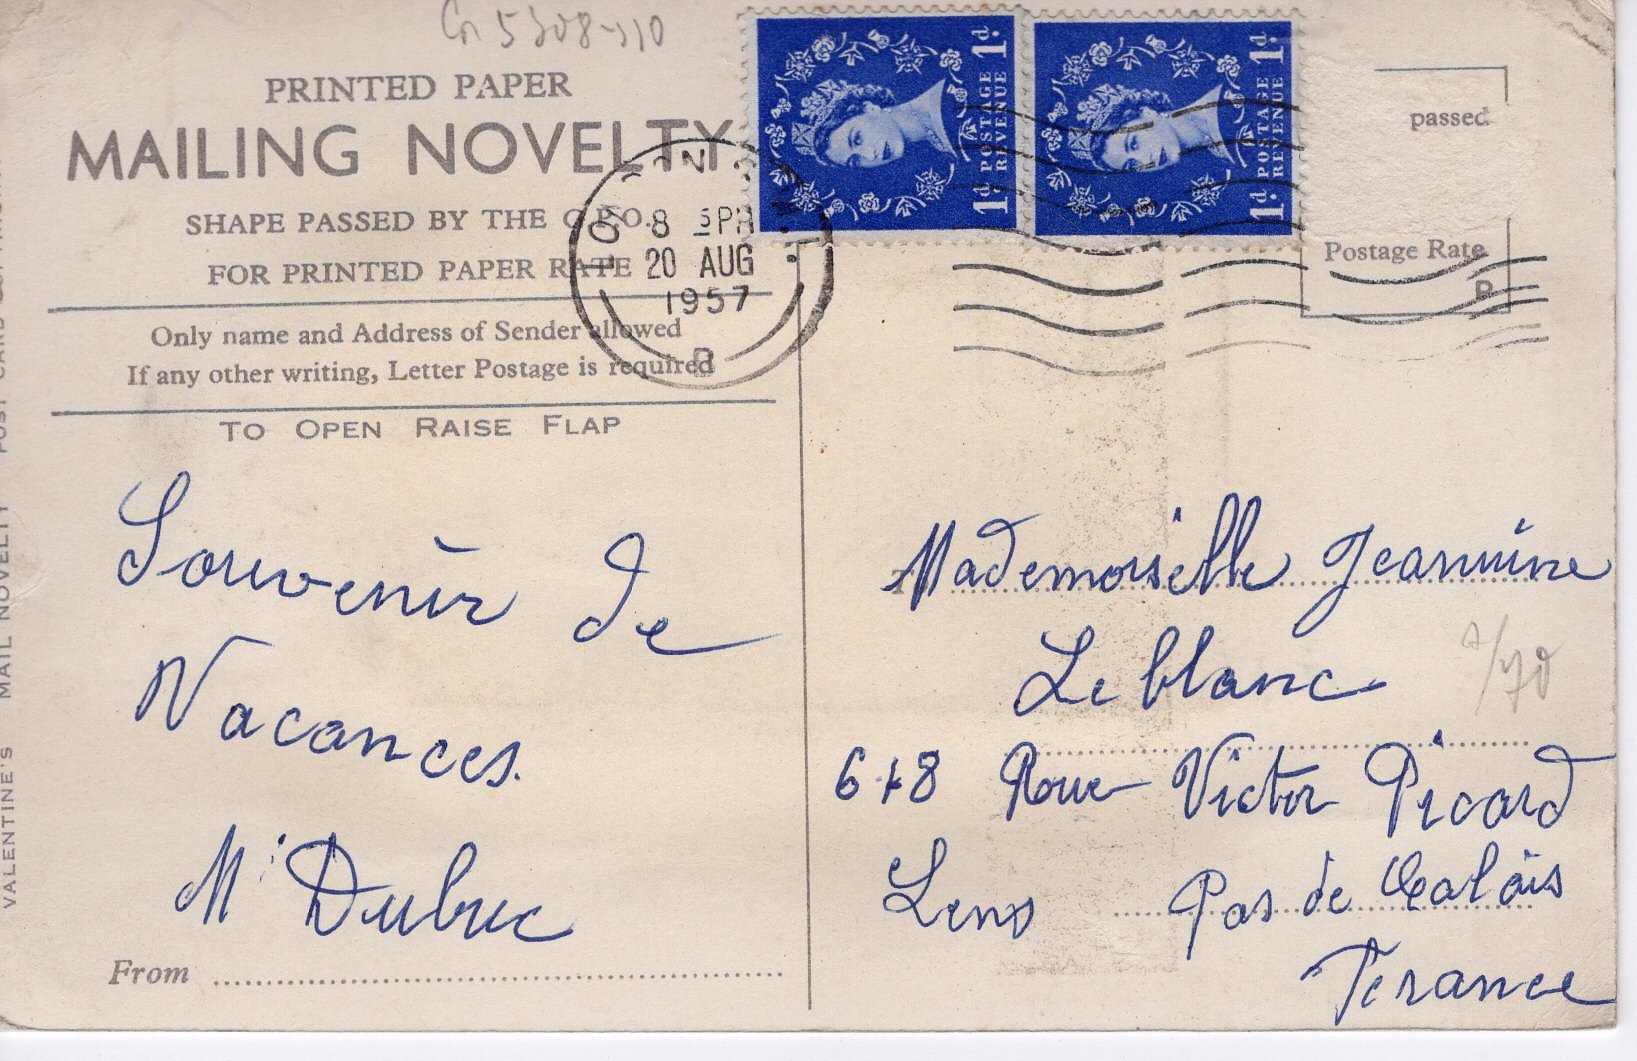 PRINTED PAPER
MAILING NOVELTY
SHAPE PASSED BY THE G.P.O.
FOR PRINTED PAPER RATE
Only name and Address of Sender allowed
If any other writing, Letter Postage is required
TO OPEN RAISE FLAP
Souvenir de
Vacances.
M. Dubuc
From
VALENTINE'S MAIL NOVELTY POST CARD
8 PM
20 AUG
1957
B
1d POSTAGE REVENUE 1d
1d POSTAGE REVENUE 1d
passed
Postage Rate
Mademoiselle Jeannine
Leblanc
648 Rue Victor Picard
Lens Pas de Calais
France